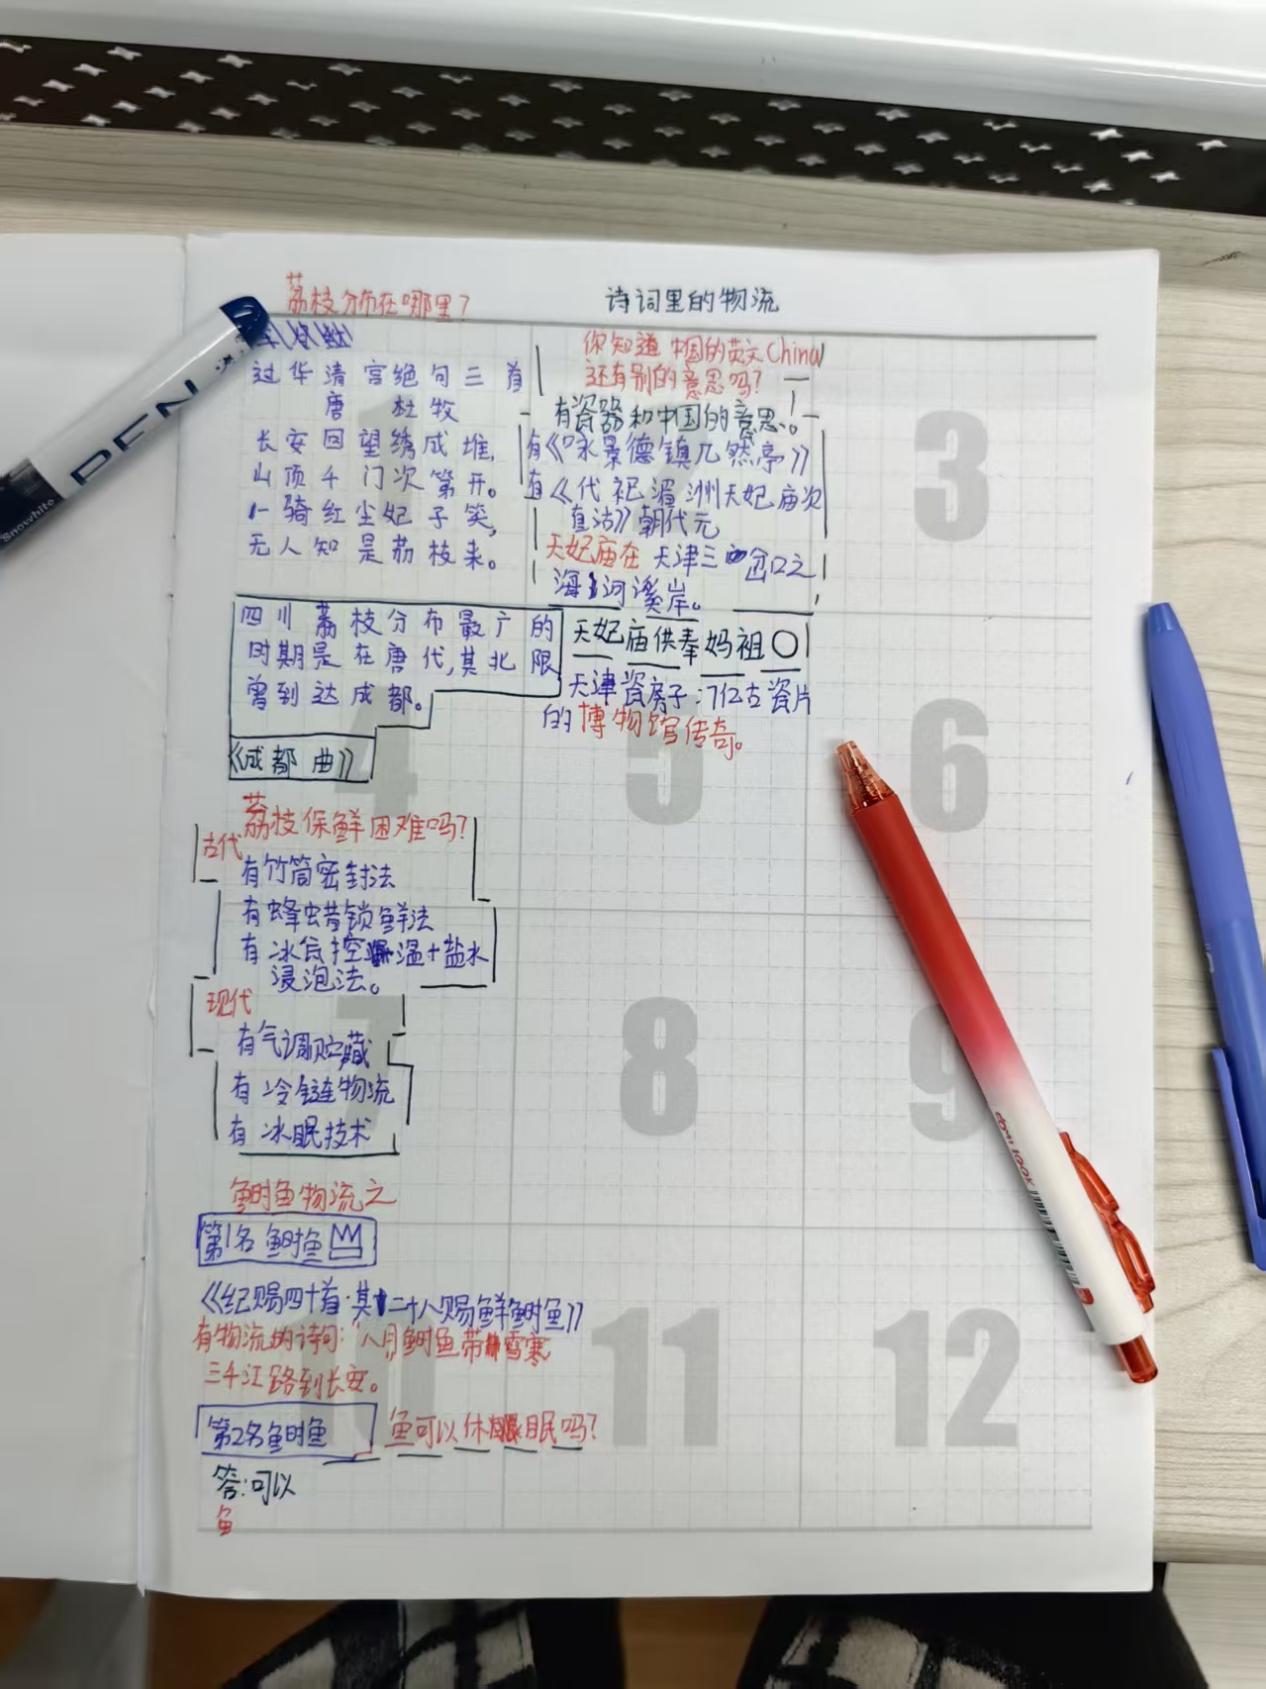 荔枝分布在哪里？
诗词里的物流
过华清宫绝句三首
唐 杜牧
长安回望绣成堆，
山顶千门次第开。
一骑红尘妃子笑，
无人知是荔枝来。
四川荔枝分布最广的
时期是在唐代,其北限
曾到达成都。
《成都曲》
荔枝保鲜困难吗？
古代
有竹筒密封法
有蜂蜡锁鲜法
有冰台控温+盐水
浸泡法。
现代
有气调贮藏
有冷链物流
有冰眠技术
鲥鱼物流之
第1名鲥鱼
《纪赐四十首·其二十八赐鲜鲥鱼》
有物流的诗词："八月鲥鱼带雪寒
三千江路到长安。
第2名鲥鱼
鱼可以休眠吗？
答:可以
鱼
你知道中国的英文China
还有别的意思吗？
有瓷器和中国的意思。
有《咏景德镇兀然亭》
有《代祀湄洲天妃庙次
直沽》朝代元
天妃庙在天津三岔口之
海河溪岸。
天妃庙供奉妈祖
天津瓷房子:7亿古瓷片
的博物馆传奇。
3
4
5
6
7
8
9
10
11
12
PEN
Snowhite